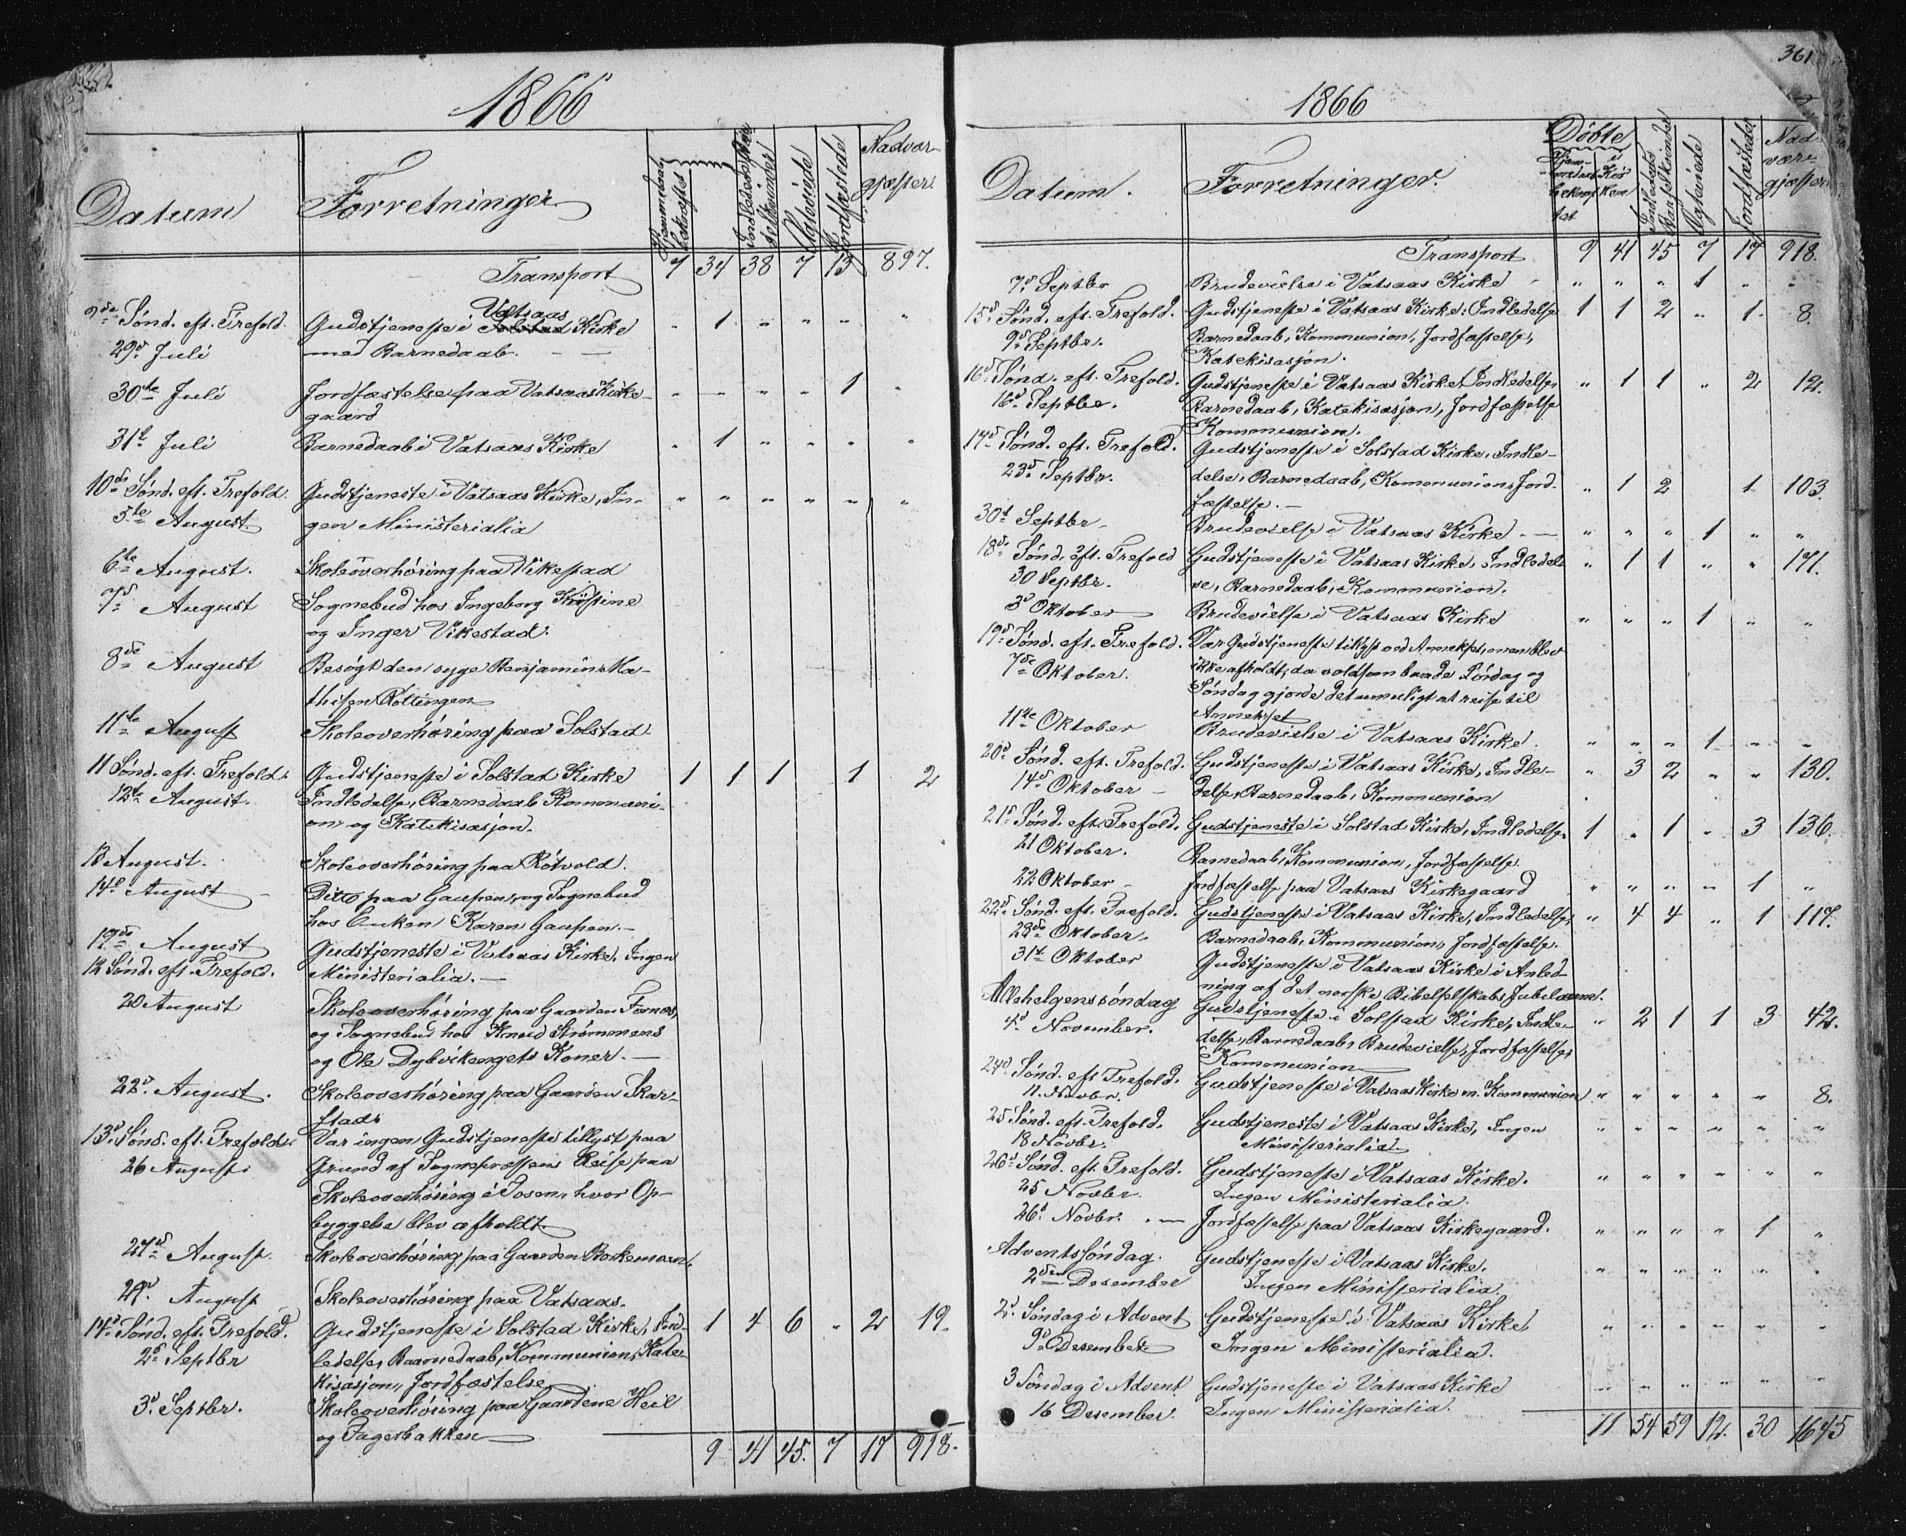 1866
Datum
Forretninger
Hjemmedøbte
Indledede
Folkeiner
Vatviede
Jordfæstede
Nadvær-
gjæster.
Transport 7 34 38 7 13 897.
9de Sønd. eft. Trefold. Gudstjeneste i Vatsaas Kirke " 1 " " " "
29d Juli med Barnedaab.
30te Juli Jordfæstelse paa Vatsaas Kirke- " " " " 1 "
gaard
31te Juli Barnedaab i Vatsaas Kirke " 1 " " " "
10de Sønd. eft. Trefold. Gudstjeneste i Vatsaas Kirke, In- " " " " " "
5te August. gen Ministerialia
6te August. Skoleoverhøring paa Vikestad
7d August Sognebud hos Ingeborg Kristine
og Inger Vikestad.
8de August Besøgt den syge Benjamin Ma-
thisen Rottingen
11te August Skoleoverhøring paa Solstad
11 Sønd. eft. Trefold. Gudstjeneste i Solstad Kirke 1 1 1 1 2
12te August. Indledelse, Barnedaab Kommuni-
on, og Katekisasjon.
13 August. Skoleoverhøring paa Røtvold.
14d August Ditto paa Gaupen, og Sognebud
hos Enken Karen Gaupen.
19de August Gudstjeneste i Vatsaas Kirke, Ingen
12 Sønd. eft. Trefold. Ministerialia.
20 August Skoleoverhøring paa Gaarden Fornes,
og Sognebud hos Knud Strømmens
og Ole Dybvikengets Koner.
22d August. Skoleoverhøring paa Gaarden Skar-
stad
13d Sønd. eft. Trefold. Var ingen Gudstjeneste tillyst paa
26 August Grund af Sognepræstens Reise paa
Skoleoverhøring i Fosen, hvor Op-
byggelse blev afholdt.
27d August. Skoleoverhøring paa Gaarden
29d August Skoleoverhøring paa Vatsaas.
14d Sønd. eft. Trefold. Gudstjeneste i Solstad Kirke, Ind- 1 4 6 " 2 19.
2d Septbr ledelse, Baarnedaab, Kommunion, Kate-
kisasjon, Jordfæstelse
3d Septbr. Skoleoverhøring paa Gaardene Heil
og Fagerbakken
9 41 45. 7 17 918.
361
1866
Datum.
Forretninger.
Døbte
Hjem-
i Kir
ken
Indledede
Vatviede
Jordfæstede
Nad-
vær-
gjæster.
Transport 9 41 45 7 17 918.
7d Septbr Brudevielse i Vatsaas Kirke " " " 1 " "
15d Sønd. eft. Trefold. Gudstjeneste i Vatsaas Kirke: Indledelse 1 1 2 " 1. 8.
9d Septbr. Barnedaab, Kommunion, Jordfæstelse,
Katekisasjon.
16d Sønd. eft. Trefold. Gudstjeneste i Vatsaas Kirke, Indledelse " 1 1 " 2 12.
16d Septbr. Barnedaab, Katekisasjon, Jordfæstelse
Kommunion.
17d Sønd. eft. Trefold. Gudstjeneste i Solstad Kirke, Indle-
23d Septbr. delse, Barnedaab, Kommunion, Jord- " 1 2 1 103.
fæstelse.
30t Septbr Brudevielse i Vatsaas Kirke. " " " 1 " "
18de Sønd. eft. Trefold Gudstjeneste i Vatsaas Kirke, Indledel- " 1 1 " " 171.
30 Septbr. se, Barnedaab, Kommunion.
3d Oktober Brudevielse i Vatsaas Kirke " " " 1 " "
19d Sønd. eft. Trefold. Var Gudstjeneste tillyst ved Annekset, men blev
7de Oktober. ikke afholdt, da voldsom baade Lørdag og
Søndag gjorde det umuligt at reise til
Annekset
11te Oktober Brudevielse i Vatsaas Kirke. " " " 1 " "
20d Sønd. eft. Trefold. Gudstjeneste i Vatsaas Kirke, Indle- " 3 2 " " 130.
14d Oktober delse, Barnedaab, Kommunion
21d Sønd. eft. Trefold. Gudstjeneste i Solstad Kirke, Indledelse, 1 " 1 " 3 136.
21 Oktober. Barnedaab, Kommunion, Jordfæstelse.
22 Oktober Jordfæstelse paa Vatsaas Kirkegaard " " " " 1 "
22d Sønd. eft. Trefold. Gudstjeneste i Vatsaas Kirke, Indledelse, " 4 4 " 1 117.
28de Oktober. Barnedaab, Kommunion, Jordfæstelse.
31te Oktober Gudstjeneste i Vatsaas Kirke i Anled-
ning af det norske Bibelselskabs Jubilæum.
Allehelgenssøndag Gudstjeneste i Solstad Kirke, Indle- " 2 1 1 3 42.
4d November. delse, Barnedaab, Brudevielse, Jordfæstelse,
Kommunion
24d Sønd. eft Trefold. Gudstjeneste i Vatsaas Kirke m. Kommunion " " " " " 8.
11. Novbr.
25 Sønd. eft. Trefold. Gudstjeneste i Vatsaas Kirke, Ingen " " " " " "
18 Novbr. Ministerialia
26d Sønd. eft. Trefold. Gudstjeneste i Vatsaas Kirke. " " " " " "
25 Novbr. Ingen Ministerialia.
26d Novbr. Jordfæstelse paa Vatsaas Kirkegaard. " " " " 1 "
Adventssøndag. Gudstjeneste i Vatsaas Kirke. " " " " " "
2den Desember Ingen Ministerialia.
2d Søndag i Advent Gudstjeneste i Vatsaas Kirke " " " " " "
9d Desember Ingen Ministerialia.
3 Søndag i Advent Gudstjeneste i Vatsaas Kirke " " " " " "
16 Desember. Ingen Ministerialia.
11 54 59 12. 30 1645